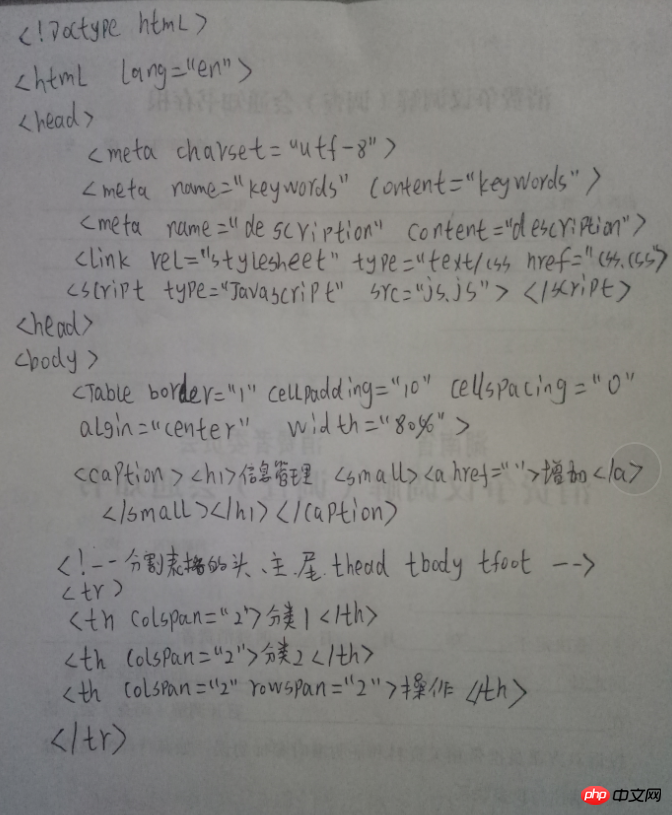 <!Doctype html>
<html lang="en">
<head>
<meta charset="utf-8">
<meta name="keywords" content="keywords">
<meta name="description" content="description">
<link rel="stylesheet" type="text/css href="css.css>
<script type="Javascript" src="js.js"> </script>
<head>
<body>
<Table border="1" cellpadding="10" cellspacing="0"
algin="center" width="80%">
<caption><h1>信息管理 <small><a href="">增加</a>
</small></h1></caption>
<!-- 分割表格的头、主、尾 thead tbody tfoot -->
<tr>
<th colspan="2">分类1</th>
<th colspan="2">分类2</th>
<th colspan="2" rowspan="2">操作</th>
</tr>
php 中文网